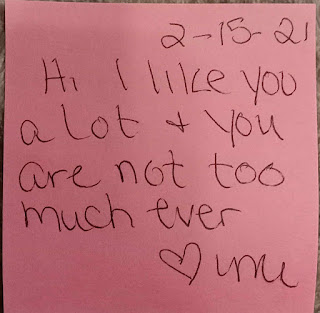 2-15-21
Hi I like you
a lot + you
are not too
much ever
♡ me